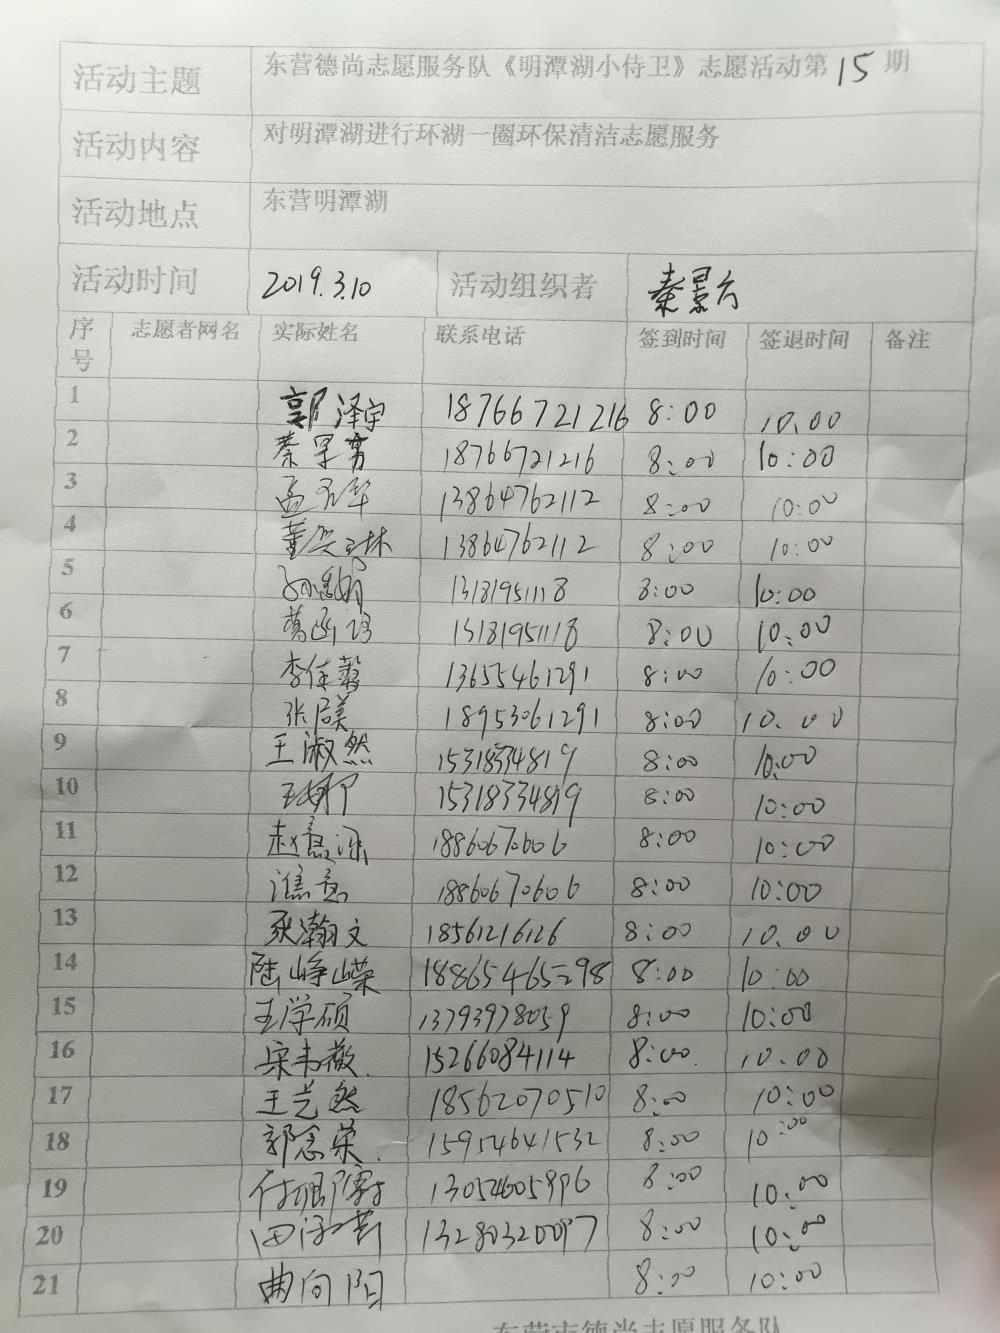 活动主题 东营德尚志愿服务队《明潭湖小侍卫》志愿活动第15期
活动内容 对明潭湖进行环湖一圈环保清洁志愿服务
活动地点 东营明潭湖
活动时间 2019.3.10 活动组织者 秦景
序号 志愿者网名 实际姓名 联系电话 签到时间 签退时间 备注
1 郭泽宇 18766721216 8:00 10.00
2 秦 18766721216 8:00 10:00
3 孟 13864762112 8:00 10:00
4 董 13864762112 8:00 10:00
5 13181951118 8:00 10:00
6 葛函 13181951118 8:00 10:00
7 李佳馨 13655461291 8:00 10:00
8 张 18953061291 8:00 10.00
9 王淑然 15318334819 8:00 10:00
10 15318334819 8:00 10:00
11 赵 18860670606 8:00 10:00
12 18860670606 8:00 10:00
13 张瀚文 18561216126 8:00 10.00
14 陆峥嵘 18865465298 8:00 10:00
15 王学硕 13793978059 8:00 10:00
16 宋韦薇. 15266084114 8:00. 10.00
17 王艺然 18562070510 8:00 10:00
18 郭念荣. 15954641532 8:00 10:00
19 付 13054605896 8:00 10:00
20 田 13280320097 8:00 10:00
21 曲向阳 8:00 10:00
东营市德尚志愿服务队